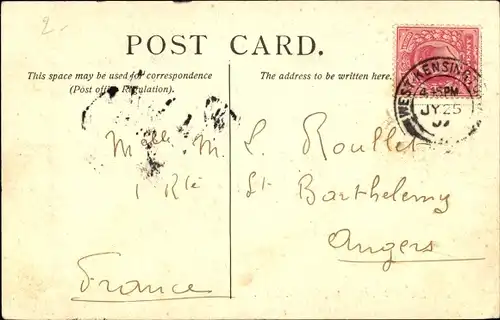 2-
POST CARD.
This space may be used for correspondence
(Post office Regulation).
The address to be written here.
WEST KENSING
4.15PM
JY 25
07
Mlle M. L. Roullet
1 Rte St Barthelemy
Angers
France